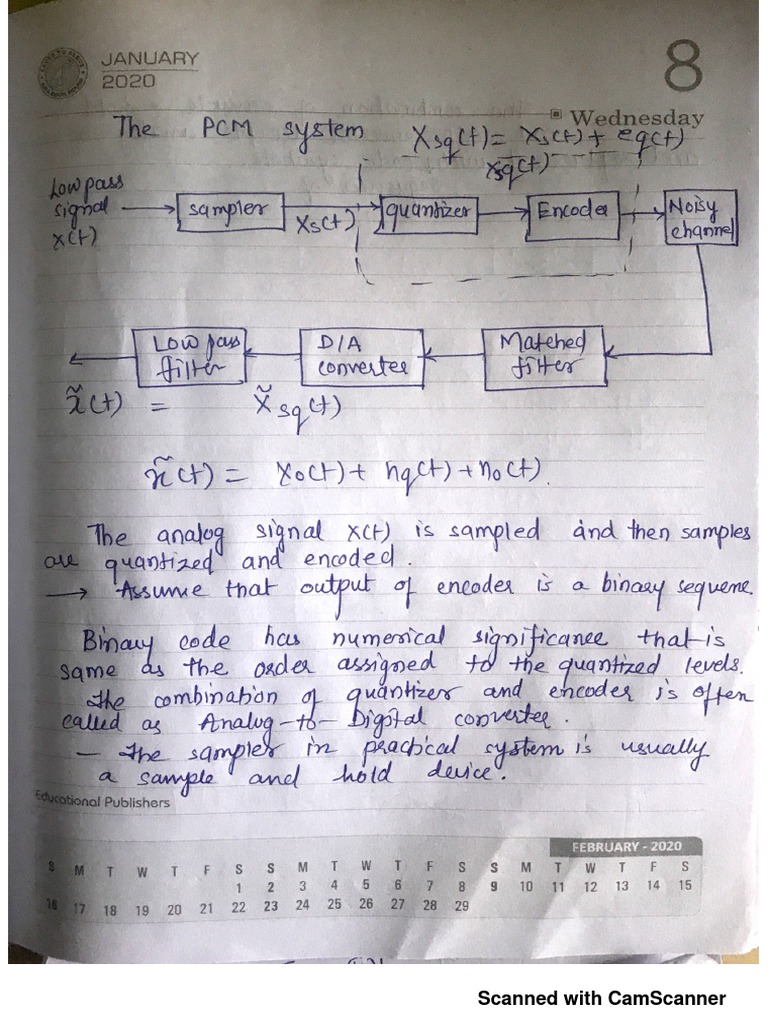 JANUARY
2020
8
Wednesday
The PCM system
Xsq(t) = Xs(t) + eq(t)
Xsq(t)
Low pass
signal
x(t)
sampler
Xs(t)
quantizer
Encoder
Noisy
channel
Low pass
filter
D/A
converter
Matched
filter
x̃(t) = X̃sq(t)
x̃(t) = Xo(t) + nq(t) + no(t).
The analog signal x(t) is sampled and then samples
are quantized and encoded.
→ Assume that output of encoder is a binary sequene
Binary code has numerical significance that is
same as the order assigned to the quantized levels.
The combination of quantizer and encoder is often
called as Analog-to-Digital converter.
- The sampler in practical system is usually
a sample and hold device.
Educational Publishers
FEBRUARY - 2020
S M T W T F S S M T W T F S S M T W T F S
1 2 3 4 5 6 7 8 9 10 11 12 13 14 15
16 17 18 19 20 21 22 23 24 25 26 27 28 29
Scanned with CamScanner